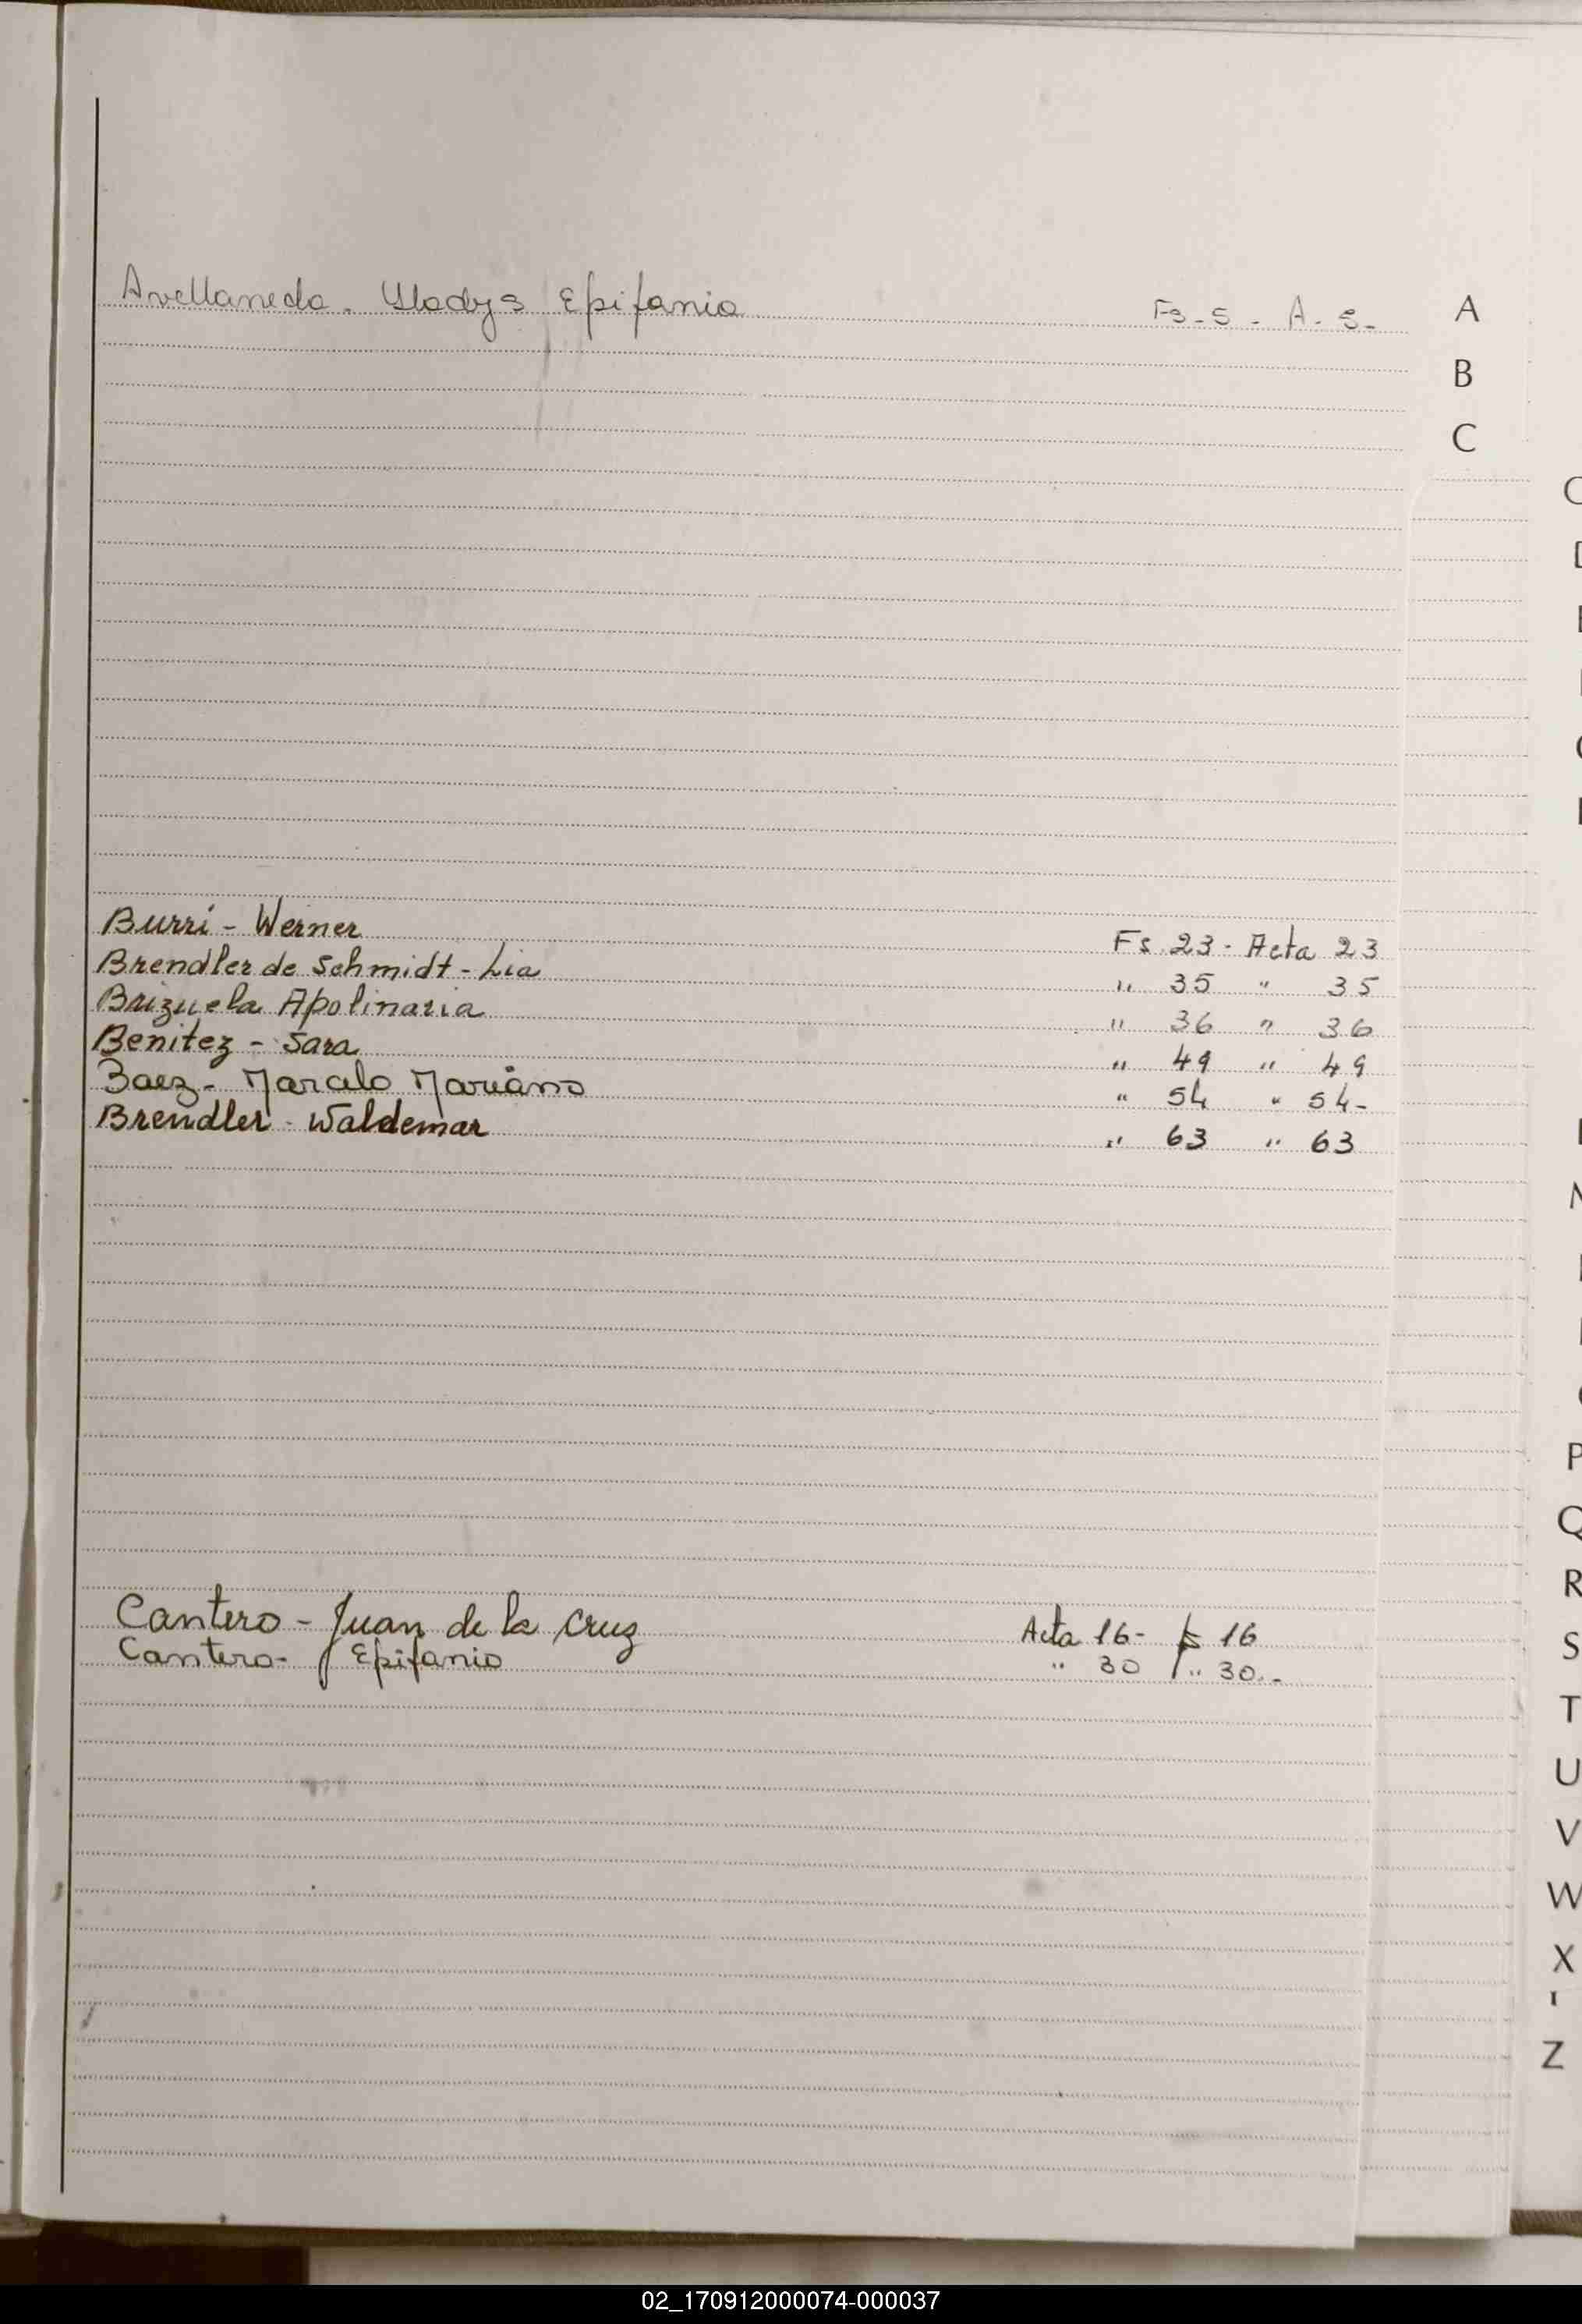 Avellaneda. Gladys Epifania Fs-5- A-5-
A
B
C
Burri - Werner Fs 23 - Acta 23
Brendler de Schmidt - Lia " 35 " 35
Brizuela Apolinaria " 36 " 36
Benitez - Sara " 49 " 49
Baez - Marcelo Mariano " 54 " 54-
Brendler - Waldemar " 63 " 63
Cantero - Juan de la Cruz Acta 16- Fs 16
Cantero - Epifanio " 30 " 30.-
P
Q
R
S
T
U
V
W
X
Z
02_170912000074-000037